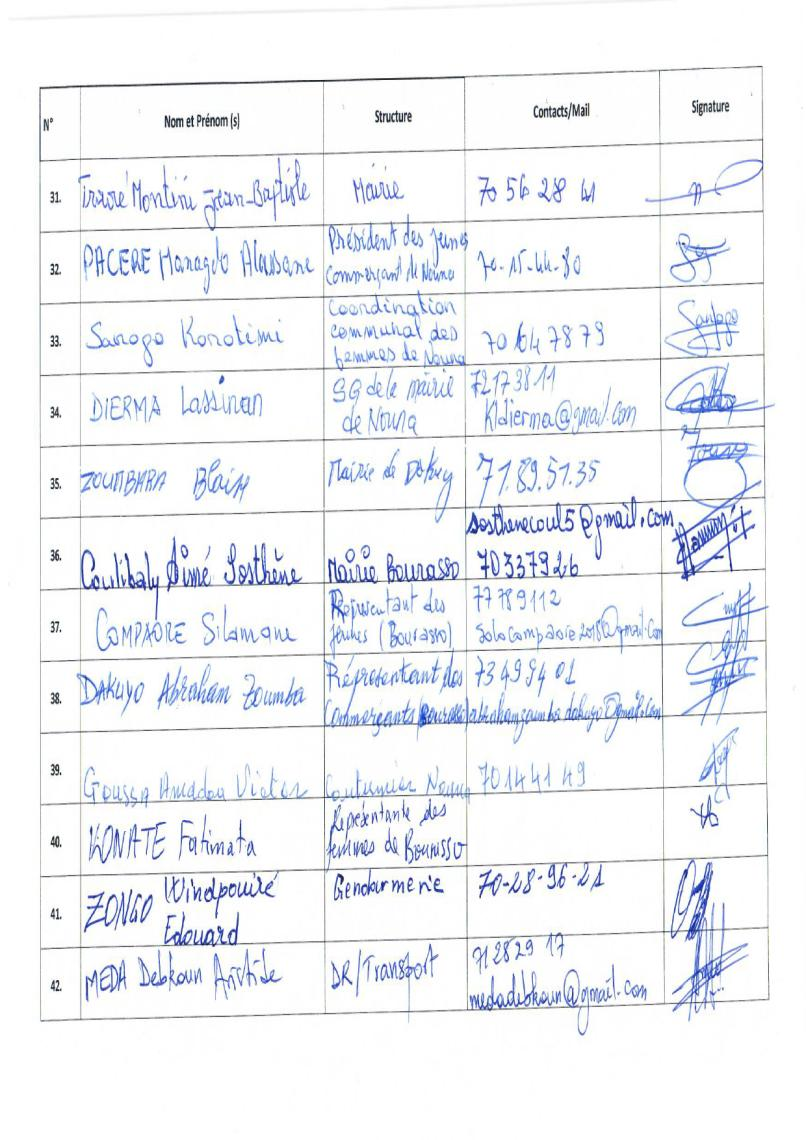 N° Nom et Prénom (s) Structure Contacts/Mail Signature
31. Traoré Montini Jean-Baptiste Mairie 70 56 28 41
32. PACERE Managdo Alassane Président des jeunes
commerçant de Nouna 70-15-44-80
33. Sanogo Korotimi Coordination
communal des
femmes de Nouna 70 64 78 79
34. DIERMA Lassinan SG de le mairie
de Nouna 72173811
Kldierma@gmail.com
35. ZOUMBARA Blaise Mairie de Dokuy 71.89.51.35
36. Coulibaly Aimé Sosthène Mairie Bourasso sosthenecoul5@gmail.com
70337926
37. COMPAORE Silamane Représentant des
jeunes (Bourasso) 77789112
solocompaore2018@gmail.com
38. DAKUYO Abraham Zoumba Réprésentant des
Commerçants (Bourasso) 73499401
abrahamzoumba.dakuyo@gmail.com
39. Goussa Amadou Victor Coutumier Nouna 70144149
40. KONATE Fatimata Représentante des
femmes de Bourasso
41. ZONGO Windpouiré
Edouard Gendarmerie 70-28-96-21
42. MEDA Debkoun Aristide DR/Transport 712829 17
medadebkoun@gmail.com